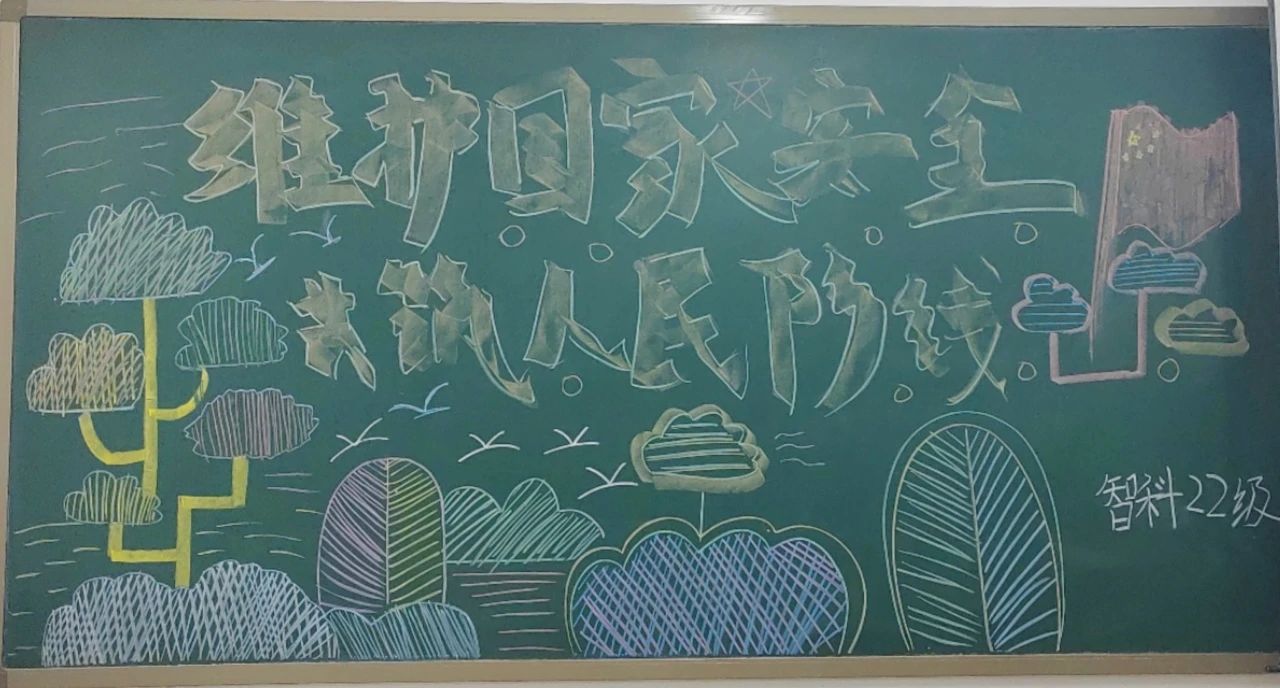 维护国家安全
共筑人民防线
智科22级